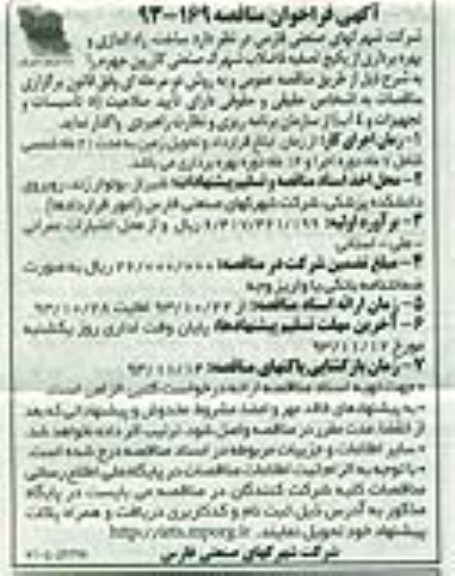 آگهی فراخوان مناقصه ۱۶۹-۹۳
شرکت شهرکهای صنعتی فارس در نظر دارد ساخت، راه اندازی و
بهره برداری از پکیج تصفیه فاضلاب شهرک صنعتی کازرون جهرم را
به شرح ذیل از طریق مناقصه عمومی و به روش دو مرحله ای وفق قانون برگزاری
مناقصات به اشخاص حقیقی و حقوقی دارای تأیید صلاحیت تاسیسات و
تجهیزات و آب از سازمان برنامه ریزی و نظارت راهبردی واگذار نماید.
۱- زمان اجرای کار: از زمان ابلاغ قرارداد و تحویل زمین به مدت ماه شمسی
شامل ماه دوره اجرا و ۱۲ ماه دوره بهره برداری می باشد.
۲- محل اخذ اسناد مناقصه و تسلیم پیشنهادات: شیراز، بولوار زند، روبروی
دانشکده پزشکی، شرکت شهرکهای صنعتی فارس (امور قراردادها)
۳- برآورد اولیه: ریال و از محل اعتبارات عمرانی
- ملی - استانی
۴- مبلغ تضمین شرکت در مناقصه: ریال به صورت
ضمانتنامه بانکی یا واریز وجه
۵- زمان ارائه اسناد مناقصه: از ۹۳/۱۰/۲۲ لغایت ۹۳/۱۰/۲۸
۶- آخرین مهلت تسلیم پیشنهادها: پایان وقت اداری روز یکشنبه
مورخ ۹۳/۱۱/۱۲
۷- زمان بازگشایی پاکتهای مناقصه: ۹۳/۱۱/۱۳
*جهت تهیه اسناد مناقصه ارائه درخواست کتبی الزامی است.
- به پیشنهادهای فاقد مهر و امضا، مشروط مخدوش و پیشنهاداتی که بعد
از انقضا مدت مقرر در مناقصه واصل شود، ترتیب اثر داده نخواهد شد.
- سایر اطلاعات و جزییات مربوطه در اسناد مناقصه درج شده است.
- با توجه به الزام ثبت اطلاعات مناقصات در پایگاه ملی اطلاع رسانی
مناقصات کلیه شرکت کنندگان در مناقصه می بایست در پایگاه
مذکور به آدرس ذیل ثبت نام و کد کاربری دریافت و همراه پاکات
پیشنهاد خود تحویل نمایند. http://iets.mporg.ir
شرکت شهرکهای صنعتی فارس